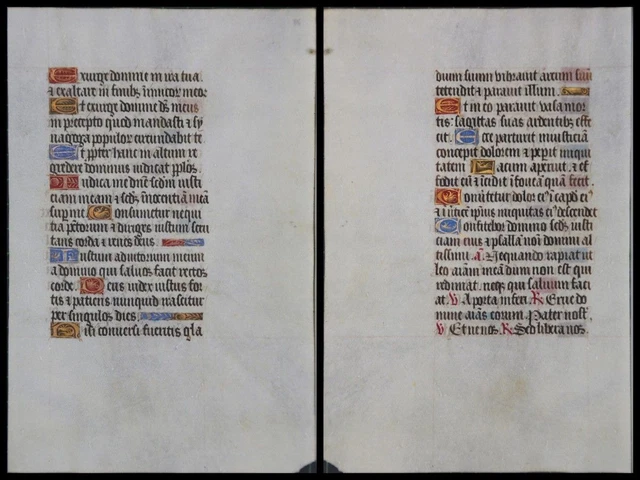 Exurge domine in ira tua
⁊ exaltare in finibz inimicor meor
Et exurge domine ds meus
in precepto quod mandasti ⁊ sy
nagoga populor circundabit te
Et ppter hanc in altum re
gredere dominus iudicat pplos
Iudica me dne sedm iusti
ciam meam ⁊ sedz innocentiā meā
sup me Consumetur nequi
tia pctorum ⁊ diriges iustum scru
tans corda ⁊ renes deus
Iustum adiutorium meum
a domino qui saluos facit rectos
corde Deus iudex iustus for
tis ⁊ patiens nunquid irascitur
per singulos dies
Nisi conuersi fueritis gla
dium suum vibrauit arcum suū
tetendit ⁊ parauit illum
Et in eo parauit vasa mor
tis sagittas suas ardentibz effe
cit Ecce parturit iniusticiā
concepit dolorem ⁊ peperit iniqui
tatem Lacum aperuit ⁊ ef
fodit eū ⁊ icidit i foueā quā fecit
Conuertetur dolor ei i caput ei
⁊ i vertice ipius iniquitas ei descendet
Confitebor domino sedz iusti
ciam eius ⁊ psallā noi domini al
tissimi A Nequando rapiat ut
leo aiam meā dum non est qui
redimat neqz qui saluum faci
at V A porta inferi R Erue do
mine aias eorum Pater nost
V Et ne nos R Sed libera nos